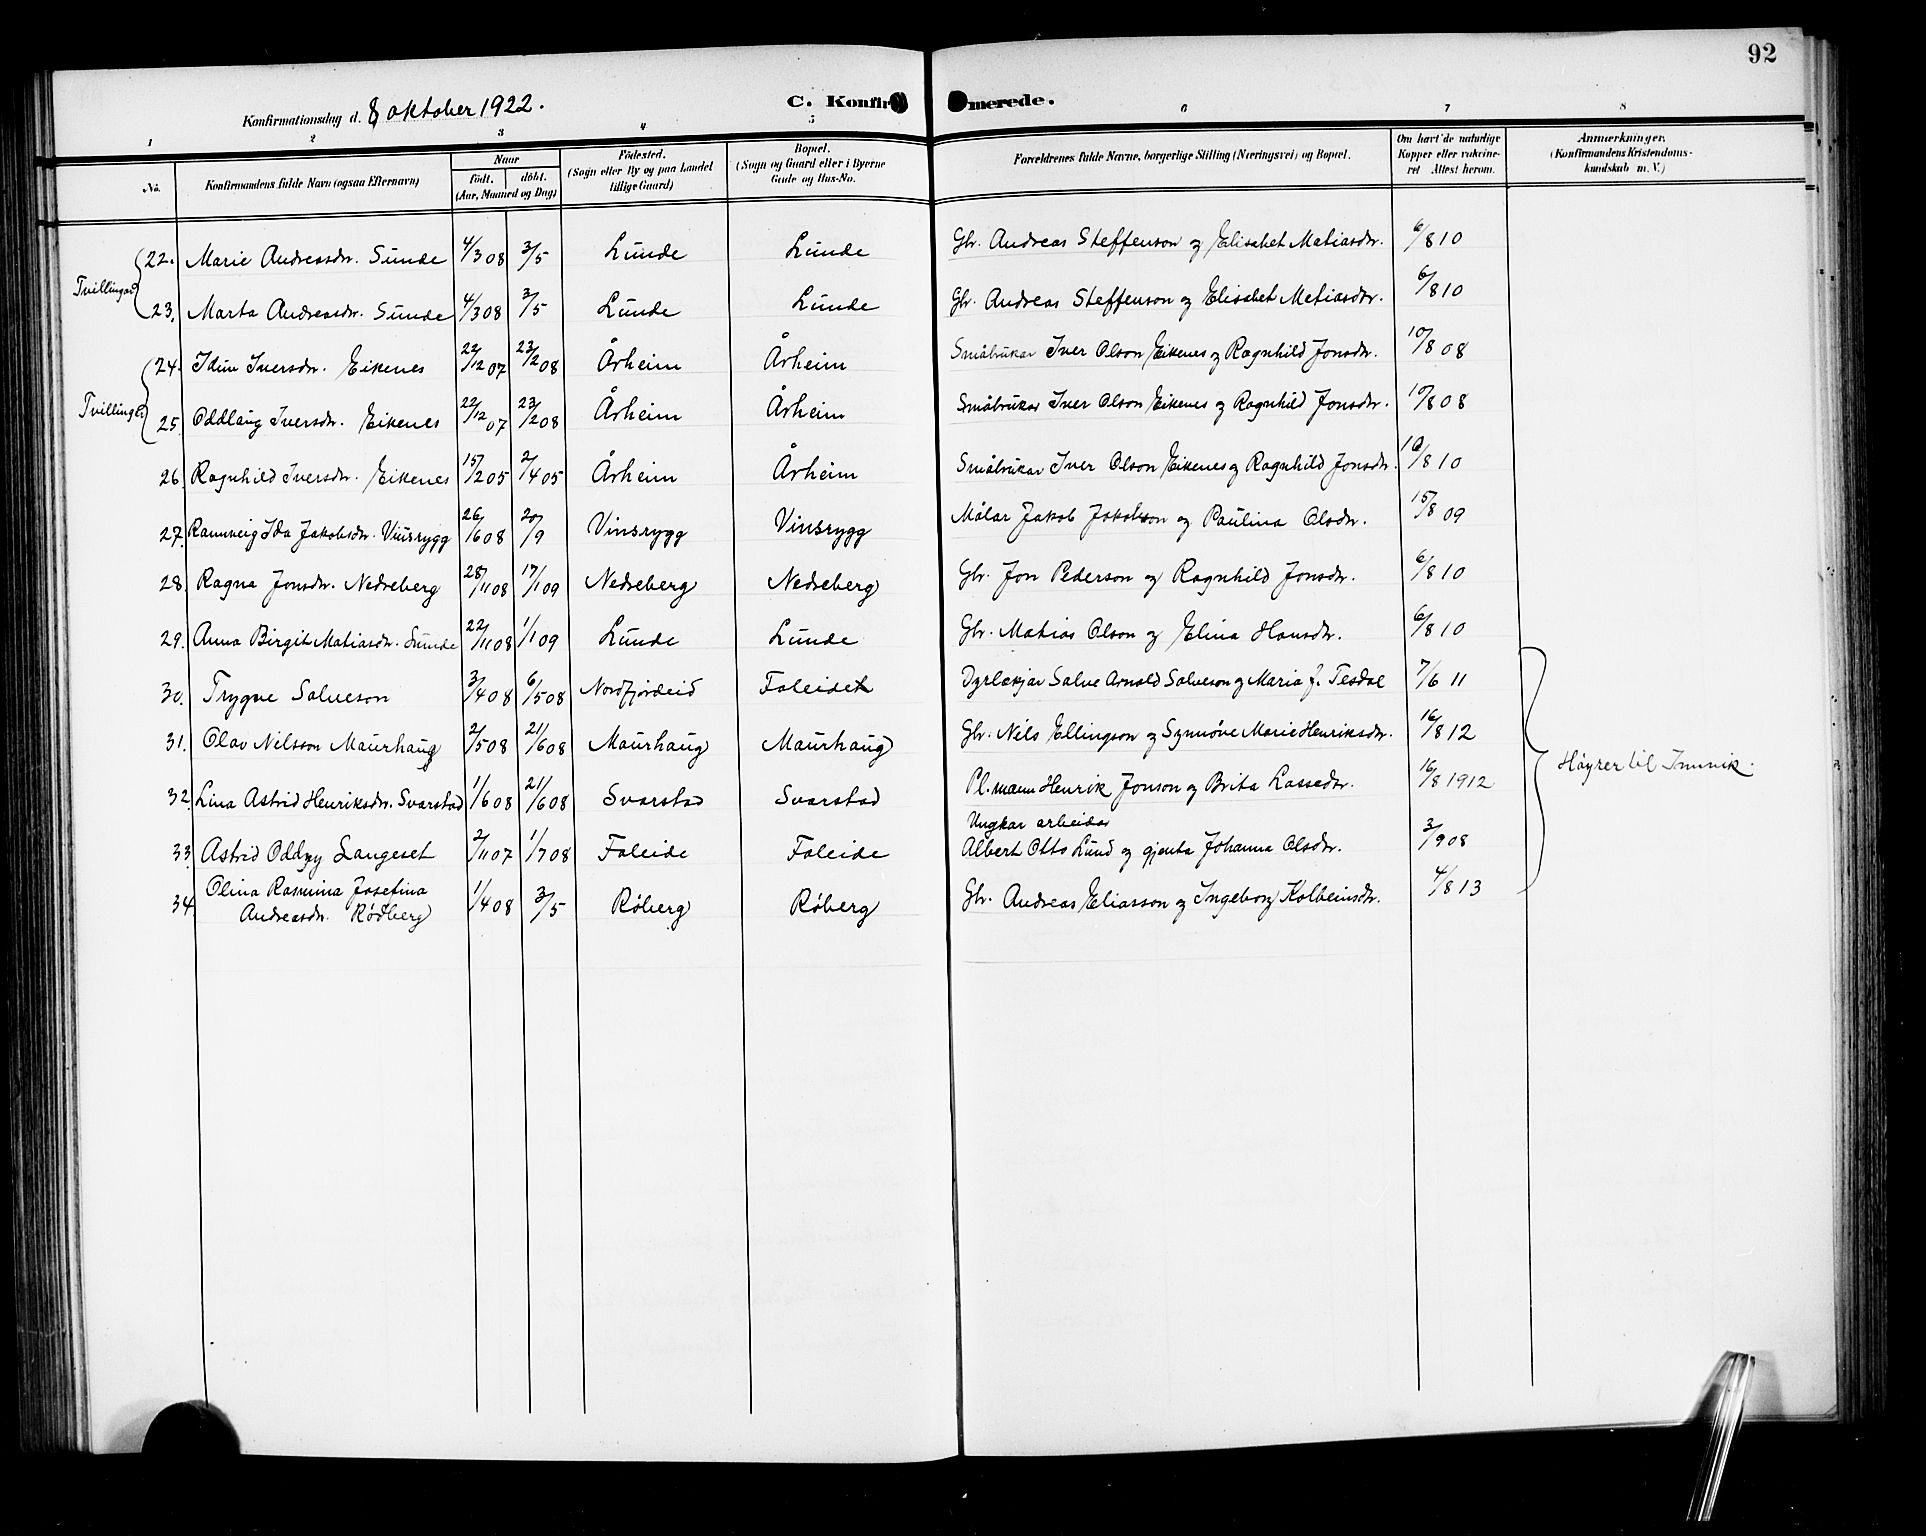 92
C. Konfirmerede.
Konfirmationsdag d. 8 oktober 1922.
1 2 3 4 5 6 7 8
No.
Konfirmandens fulde Navn (ogsaa Efternavn)
Naar
født. døbt.
(Aar, Maaned og Dag)
Fødested.
(Sogn eller By og paa Landet
tillige Gaard)
Bopæl.
(Sogn og Gaard eller i Byerne
Gade og Hus-No.
Forældrenes fulde Navne, borgerlige Stilling (Næringsvei) og Bopæl.
Om havt de naturlige
Kopper eller vakcine-
ret Attest herom.
Anmærkninger.
(Konfirmandens Kristendoms-
kundskab m. V.)
Tvillingar
22. Marie Andreasdr. Sunde 4/3 08 3/5 Lunde Lunde Gbr. Andreas Steffenson og Elisabet Matiasdr. 6/8 10
23. Marta Andreasdr. Sunde 4/3 08 3/5 Lunde Lunde Gbr. Andreas Steffenson og Elisabet Metiasdr. 6/8 10
Tvillingar
24. Idun Iversdr. Eikenes 22/12 07 23/2 08 Årheim Årheim Småbrukar Iver Olson Eikenes og Ragnhild Jonsdr. 10/8 08
25. Oddlaug Iversdr. Eikenes 22/12 07 23/2 08 Årheim Årheim Småbrukar Iver Olson Eikenes og Ragnhild Jonsdr. 10/8 08
26. Ragnhild Iversdr. Eikenes 15/2 05 2/4 05 Årheim Årheim Småbrukar Iver Olson Eikenes og Ragnhild Jonsdr. 10/8 10
27. Rannveig Ida Jakobsdr. Vinsrygg 26/6 08 20/9 Vinsrygg Vinsrygg Målar Jakob Jakobson og Paulina Olsdr. 15/8 09
28. Ragna Jonsdr. Nedreberg 28/11 08 17/1 09 Nedreberg Nedreberg Gbr. Jon Pederson og Ragnhild Jonsdr. 6/8 10
29. Anna Birgit Matiasdr. Sunde 22/11 08 1/1 09 Lunde Lunde Gbr. Matias Olson og Elina Hansdr. 6/8 10
30. Trygve Salveson 3/4 08 6/5 08 Nordfjordeid Faleidet Dyrlækjar Salve Arnold Salveson og Maria f. Tesdal 7/6 11
31. Olav Nilsson Maurhaug 2/5 08 21/6 08 Maurhaug Maurhaug Gbr. Nils Ellingson og Synnøve Marie Henriksdr. 16/8 12
32. Lina Astrid Henriksdr. Svarstad 1/6 08 21/6 08 Svarstad Svarstad Pl.mann Henrik Jonson og Brita Lassedr. 16/8 1912
Høyrer til Innvik.
Ungkar arbeidar
33. Astrid Oddny Langeset 2/11 07 1/7 08 Faleide Faleide Albert Otto Lund og gjenta Johanna Olsdr. 3/9 08
34. Olina Rasmina Josefina
Andreasdr. Rødberg 1/4 08 3/5 Røberg Røberg Gbr. Andreas Eliasson og Ingeborg Kolbeinsdr. 4/8 13